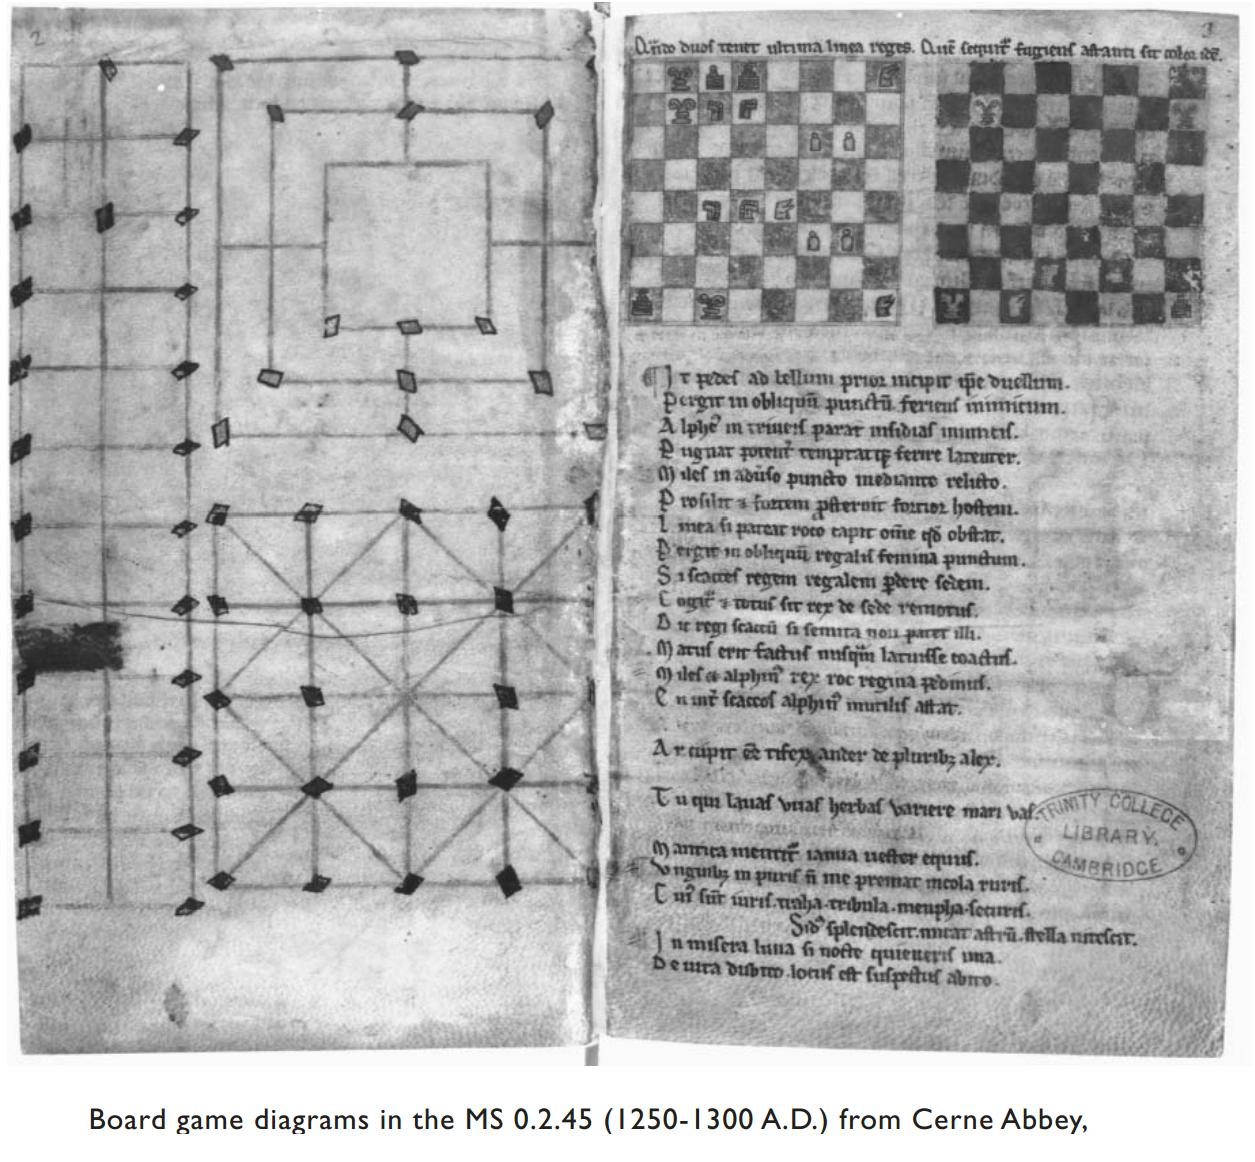 2
3
duos tenet ultima linea reges. Quẽ sequit̃ fugiens astanti sit color idẽ.
It pedes ad bellum prior incipit ip̃e duellum.
Pergit in obliquũ punctũ feriens inimicum.
in parat insidias inimicis.
Pugnat ferire latenter.
Miles in aduso puncto mediante relicto.
Prosilit & fortem psternit fortior hostem.
Linea si pateat roco capit om̃e qd̃ obstat.
Pergit in obliquũ regalis femina punctum.
Si scacces regem regalem pdere sedem.
Cogit̃ & totus sit rex de sede remotus.
Dic regi scaccũ si semita non patet illi.
Matus erit factus nusqm̃ latuisse coactus.
Miles & alphin' rex roc regina pedinus.
En int̃ scaccos alphin' inutilis astat.
de pluribz alex.
Tu qui lauas vuas herbas mari vas.
Mantica mentit̃ ianua uester equus.
Unguibz in puris ñ me premat incola ruris.
sũt iuris traha.tribula. securis.
Sid' splendescit.micat astrũ.stella nitescit.
In misera luna si nocte quieueris una.
De uita dubito.locus est suspectus abito.
TRINITY COLLEGE
LIBRARY.
CAMBRIDGE
Board game diagrams in the MS 0.2.45 (1250-1300 A.D.) from Cerne Abbey,